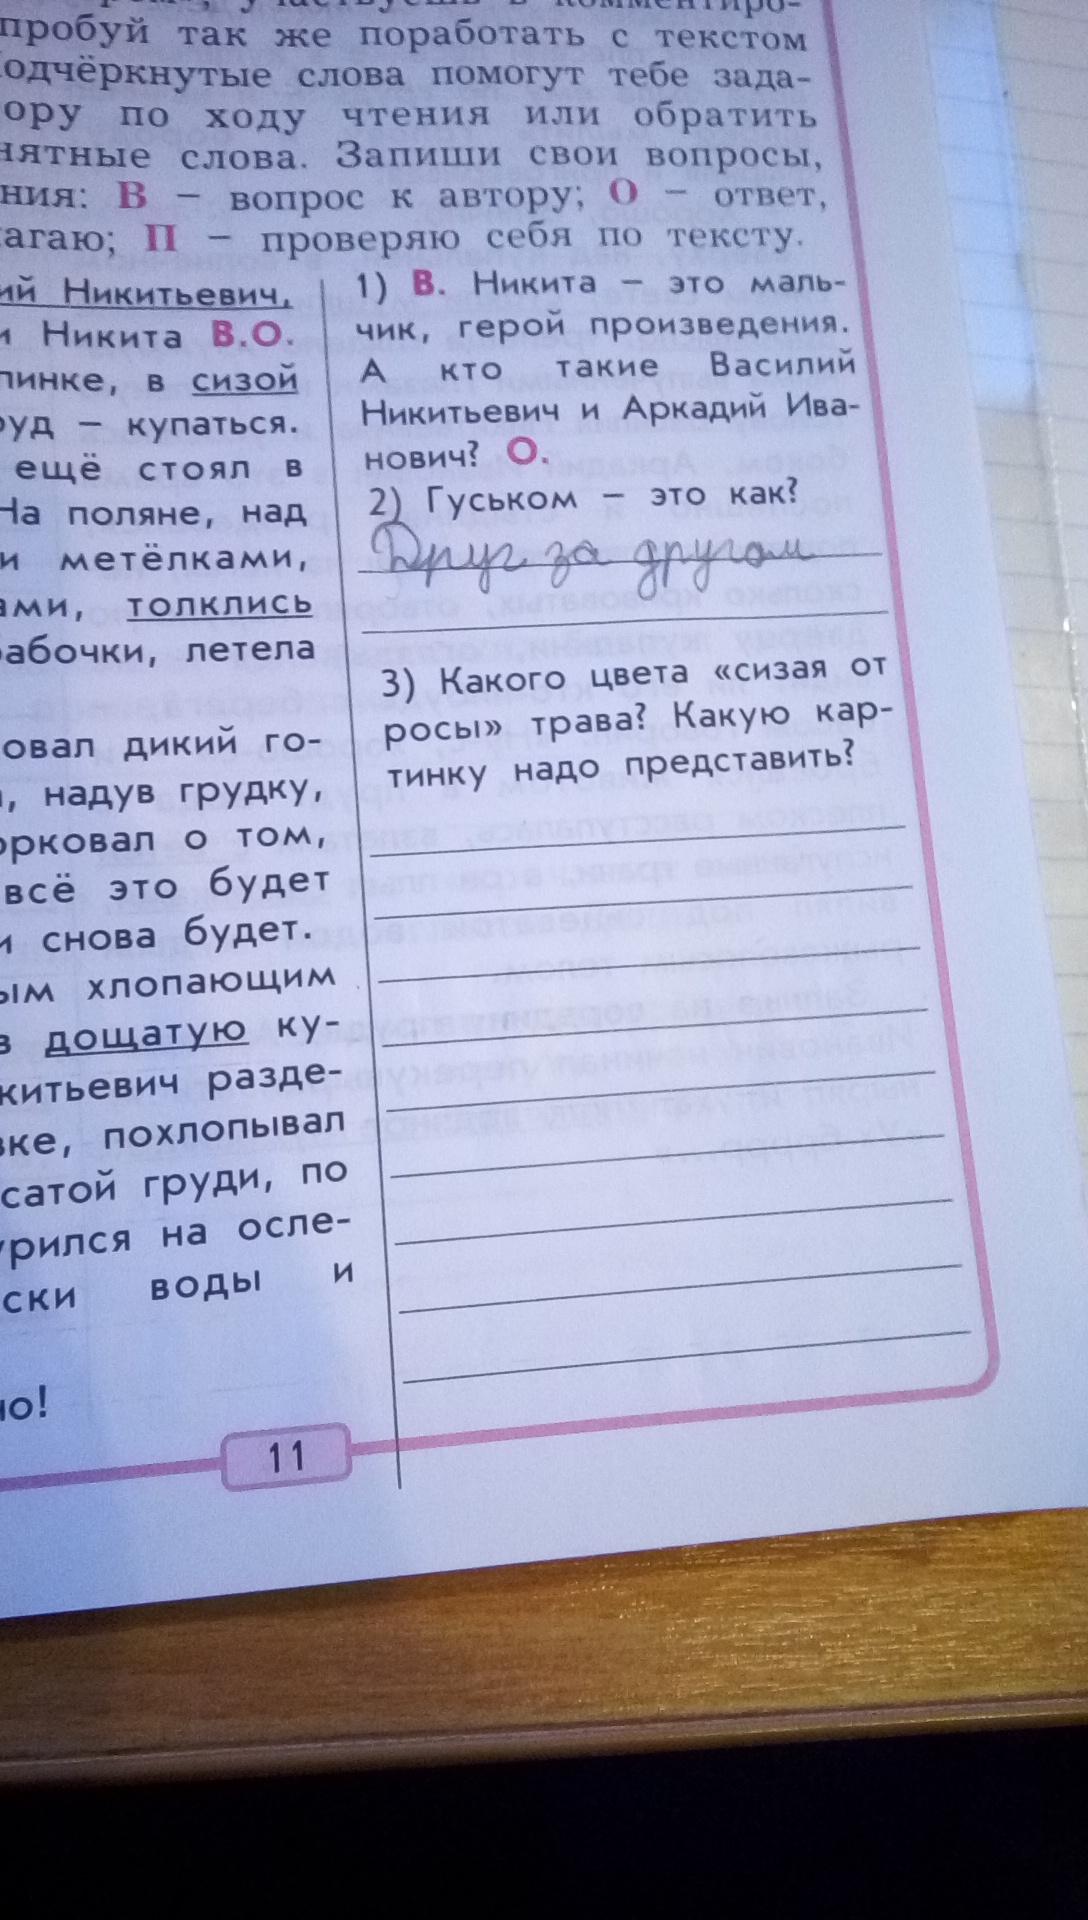 пробуй так же поработать с текстом
одчёркнутые слова помогут тебе зада-
ору по ходу чтения или обратить
нятные слова. Запиши свои вопросы,
ния: В – вопрос к автору; О – ответ,
агаю; П – проверяю себя по тексту.
ий Никитьевич,
и Никита В.О.
пинке, в сизой
руд – купаться.
ещё стоял в
На поляне, над
и метёлками,
ами, толклись
бабочки, летела
овал дикий го-
, надув грудку,
орковал о том,
всё это будет
и снова будет.
ым хлопающим
в дощатую ку-
китьевич разде-
вке, похлопывал
сатой груди, по
урился на осле-
ски воды и
но!
1) В. Никита – это маль-
чик, герой произведения.
А кто такие Василий
Никитьевич и Аркадий Ива-
нович? О.
2) Гуськом – это как?
Друг за другом
3) Какого цвета «сизая от
росы» трава? Какую кар-
тинку надо представить?
11